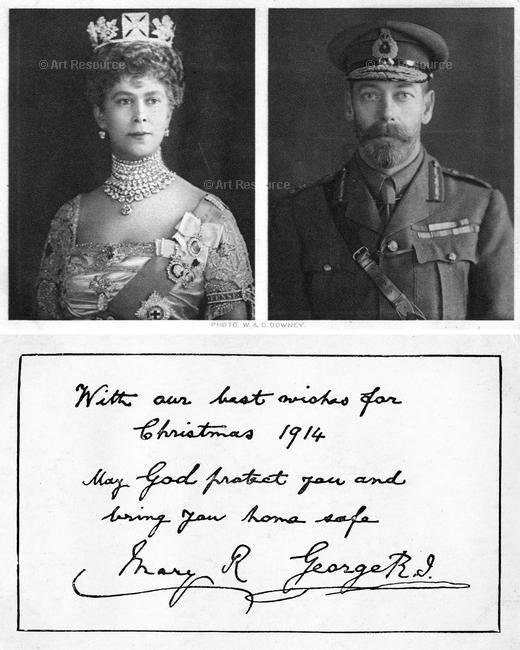 © Art Resource
© Art Resource
© Art Resource
PHOTO, W. & D. DOWNEY.
With our best wishes for
Christmas 1914
May God protect you and
bring you home safe
Mary R George R.I.